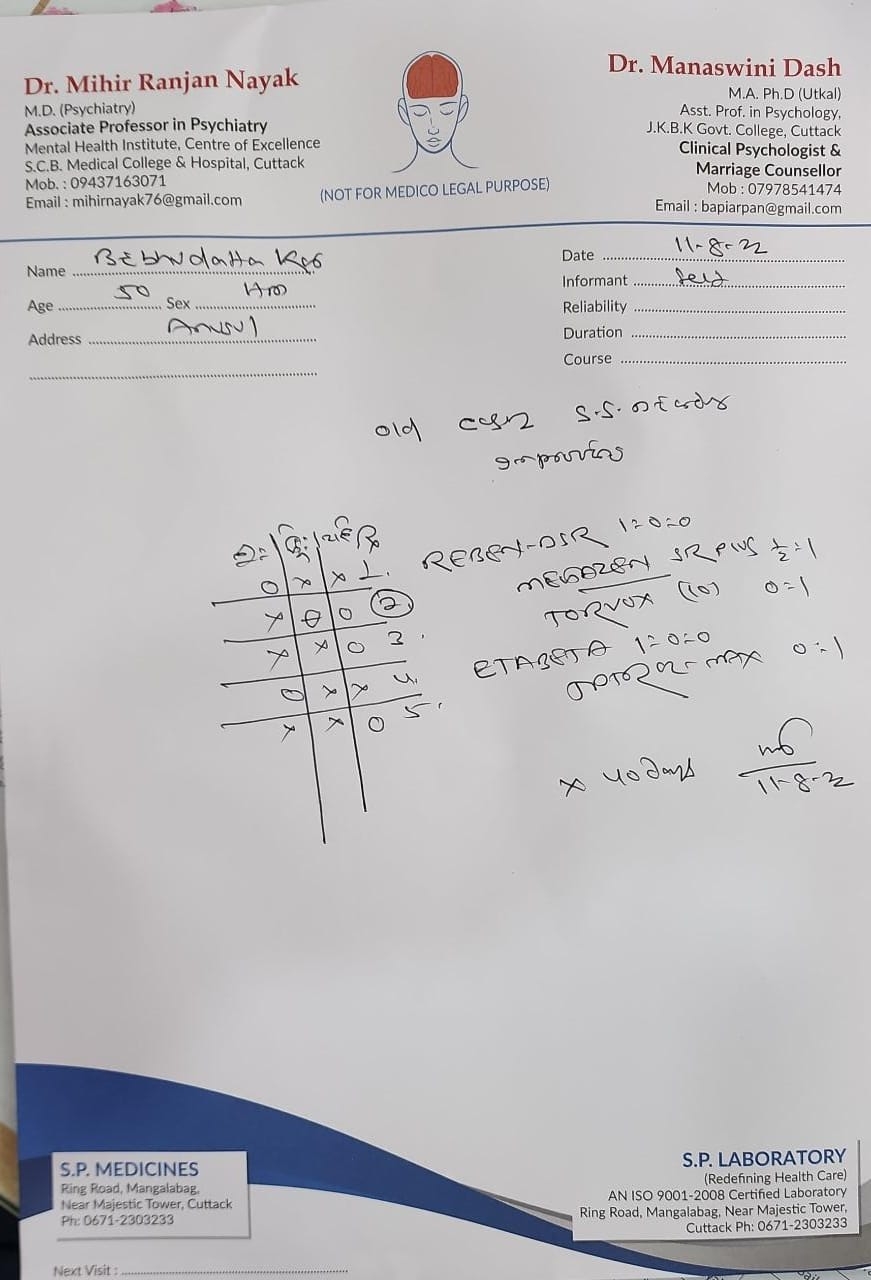 Dr. Mihir Ranjan Nayak
M.D. (Psychiatry)
Associate Professor in Psychiatry
Mental Health Institute, Centre of Excellence
S.C.B. Medical College & Hospital, Cuttack
Mob. : 09437163071
Email : mihirnayak76@gmail.com
(NOT FOR MEDICO LEGAL PURPOSE)
Dr. Manaswini Dash
M.A. Ph.D (Utkal)
Asst. Prof. in Psychology,
J.K.B.K Govt. College, Cuttack
Clinical Psychologist &
Marriage Counsellor
Mob : 07978541474
Email : bapiarpan@gmail.com
Name
Age 50 Sex
Address
Date 11-8-22
Informant Self
Reliability
Duration
Course
old S.S.
R
1. 1=0=0
2 SR PLUS ½=1
3. TORVOX (10) 0=1
4. ETABETA 1=0=0
5. MAX 0=1
x 40 days
11-8-22
S.P. MEDICINES
Ring Road, Mangalabag,
Near Majestic Tower, Cuttack
Ph: 0671-2303233
Next Visit :
S.P. LABORATORY
(Redefining Health Care)
AN ISO 9001-2008 Certified Laboratory
Ring Road, Mangalabag, Near Majestic Tower,
Cuttack Ph: 0671-2303233